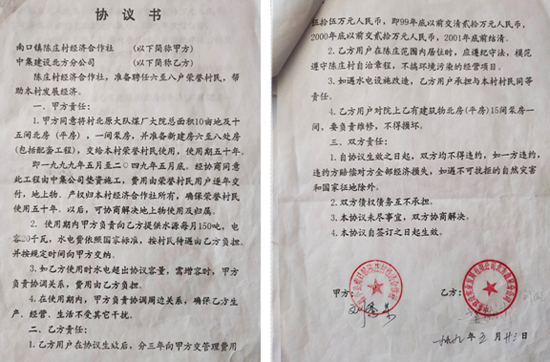 协议书
南口镇陈庄村经济合作社 （以下简称甲方）
中集建设北方分公司 （以下简称乙方）
陈庄村经济合作社，准备聘任六至八户荣誉村民，帮
助本村发展经济。
一、甲方责任：
1.甲方同意将村北原大队煤厂大院总面积10亩地及十
五间北房（平房），一间泵房，并准备新建房六至八处房
(包括配套工程)，交给本村荣誉村民使用，使用期五十年。
即一九九九年五月至二〇四九年五月底。经协商同意
此工程由中集公司垫资施工，费用由荣誉村民用户逐年交
付，地上物。产权归本村经济合作社所有，确保荣誉村民
使用五十年。以后，可协商解决地上物使用及归属。
2．使用期内甲方负责向乙方提供水源每月150吨，电
容20千瓦，水电费依照国家标准，按村民待遇由乙方负担。
并按规定时间向甲方交纳。
3．如乙方使用时水电超出协议容量，需增容时，甲方
负责协调关系，费用由乙方负担。
4.在使用期内，甲方负责协调周边关系，确保乙方生
产、经营、生活不受其它干扰。
二、乙方责任：
1.乙方用户在协议生效后，分三年向甲方交管理费用
伍拾伍万元人民币，即99年底以前交清贰拾万元人民币，
2000年底以前交贰拾万元人民币，2001年底前结清。
2．乙方用户在陈庄范围内居住时，应遵纪守法，模范
遵守陈庄村自治章程，不搞坏环境污染的经营项目。
3．如遇水电设施改造，乙方用户承担与本村村民同等
责任。
4.乙方用户对院上乙有建筑物北房(平房)15间泵房一
间，要负责维修，不得损坏。
三、双方责任：
1.自协议生效之日起，双方均不得违约，如一方违约，
违约方赔偿对方全部经济损失，如遇不可抗拒的自然灾害
和国家征地除外。
2.双方债权债务互不承担。
3.本协议未尽事宜，双方协商解决。
4.本协议自签订之日起生效。
甲方：
乙方：
五月廿三日